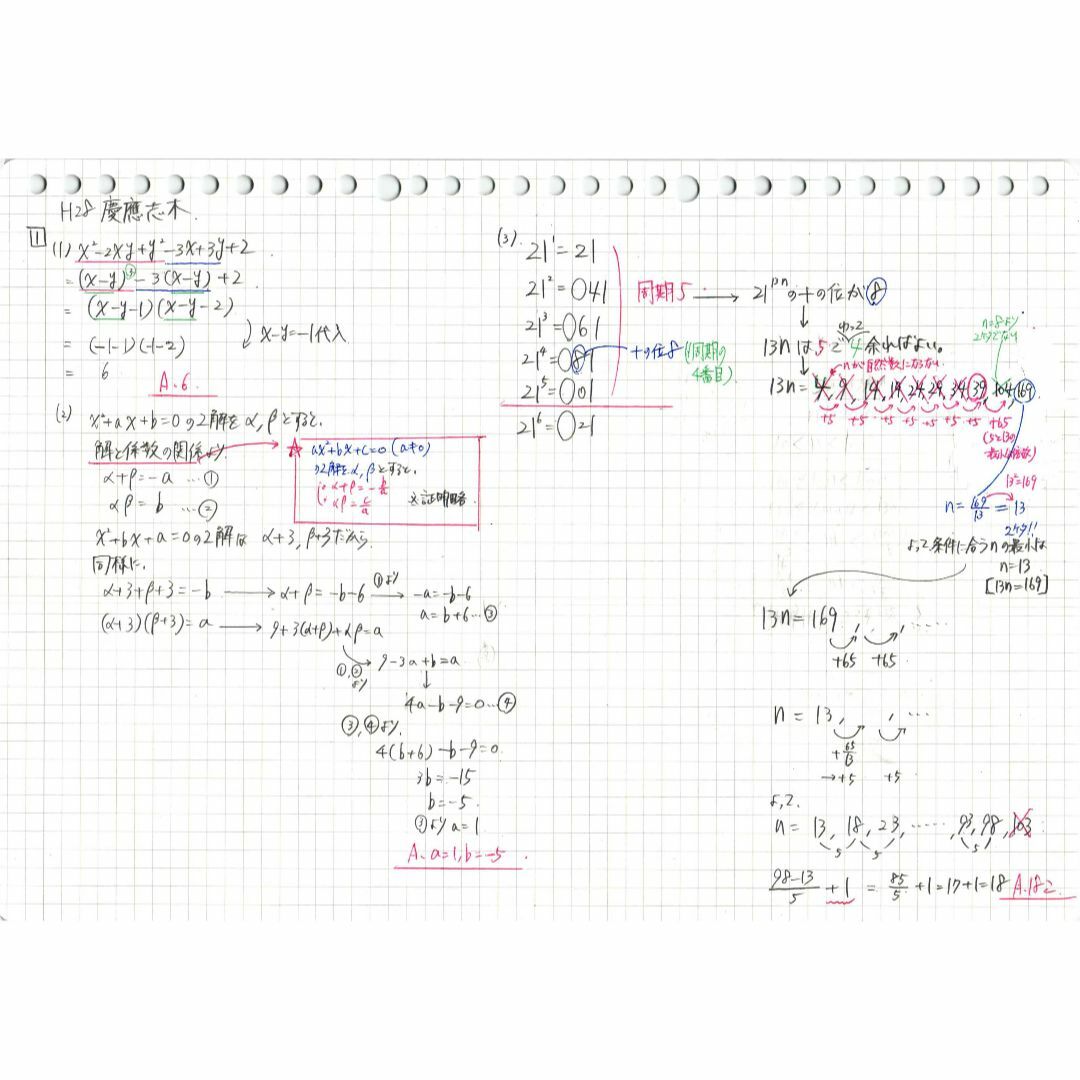 H28 慶應志木.
1
(1) x²-2xy+y²-3x+3y+2
= (x-y)²-3(x-y)+2
= (x-y-1)(x-y-2)
x-y=-1代入
= (-1-1)(-1-2)
= 6
A. 6
(2) x²+ax+b=0の2解をα, βとすると.
解と係数の関係より.
α+β=-a …①
αβ=b …②
☆ ax²+bx+c=0 (a≠0)
の2解をα, βとすると.
・α+β=-b/a
・αβ=c/a
※証明略.
x²+bx+a=0の2解は α+3, β+3だから.
同様に.
α+3+β+3=-b → α+β=-b-6 ①より → -a=-b-6
a=b+6…③
(α+3)(β+3)=a → 9+3(α+β)+αβ=a
①,②より → 9-3a+b=a
↓
4a-b-9=0…④
③,④より.
4(b+6)-b-9=0.
3b=-15
b=-5.
③より a=1
A. a=1, b=-5
(3)
21¹=21
21²=○41
21³=○61
21⁴=○81 十の位8 (1周期の
4番目).
21⁵=○01
21⁶=○21
周期5 → 21¹³ⁿの十の位が8
↓
13nは5で4余ればよい.
↓
nが自然数にならない
13n=4, 9, 14, 19, 24, 29, 34, 39, 104, 169
+5 +5 +5 +5 +5 +5 +5 +65
(5と13の
最小公倍数)
13²=169
n=169/13=13
2ケタ!!
よって条件に合うnの最小は
n=13
[13n=169]
13n=169, , ……
+65 +65
n=13, , , …
+65/13
→+5 +5
よって.
n=13, 18, 23, ……, 93, 98, 103
5 5 5
(98-13)/5 +1 = 85/5 +1=17+1=18 A. 18コ